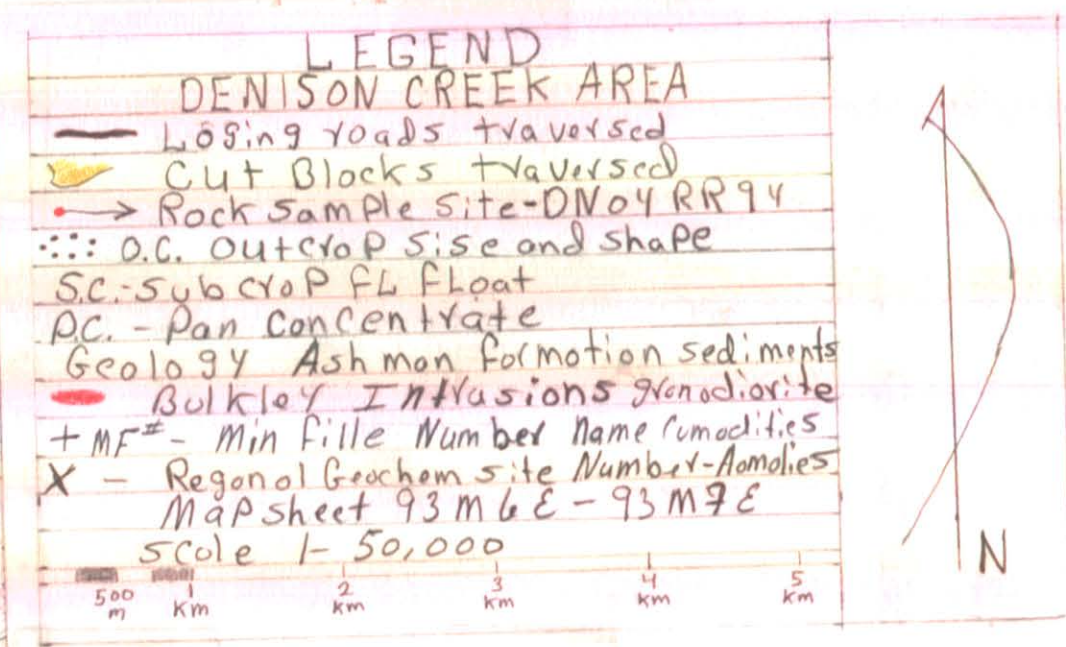 LEGEND
DENISON CREEK AREA
Loging roads traversed
Cut Blocks traversed
Rock Sample Site-DN04RR94
O.C. Outcrop Sise and Shape
S.C.-Subcrop FL Float
P.C. - Pan Concentrate
Geology Ashman formotion sediments
Bulkley Intrusions gronodiorite
+ MF# - Min Fille Number Name Comodities
X - Regonol Geochem site Number-Aomolies
Map sheet 93M6E - 93M7E
Scole 1- 50,000
500 m 1 km 2 km 3 km 4 km 5 km
N